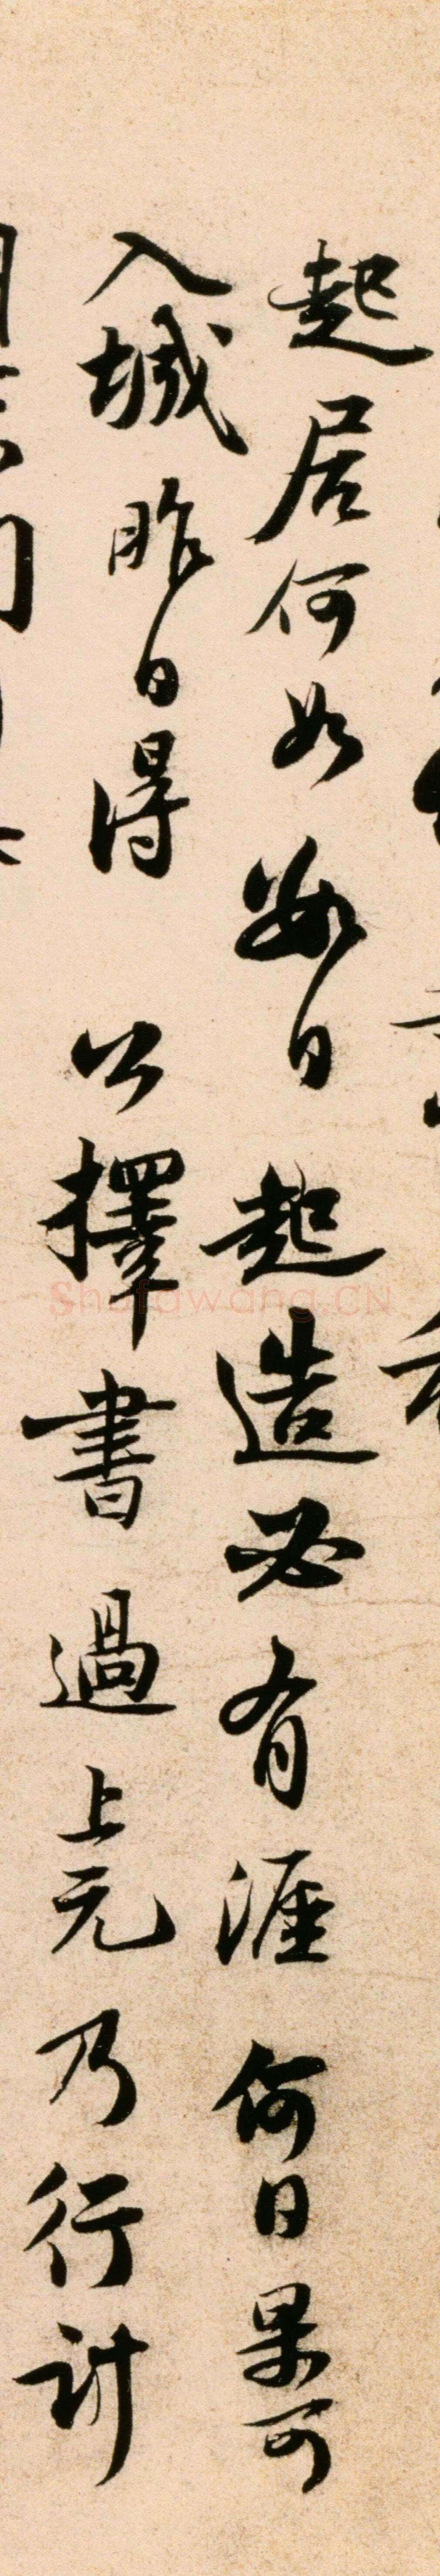 起居何如數日起造必有涯何日果可
入城昨日得 公擇書過上元乃行計
ShufaWang.CN